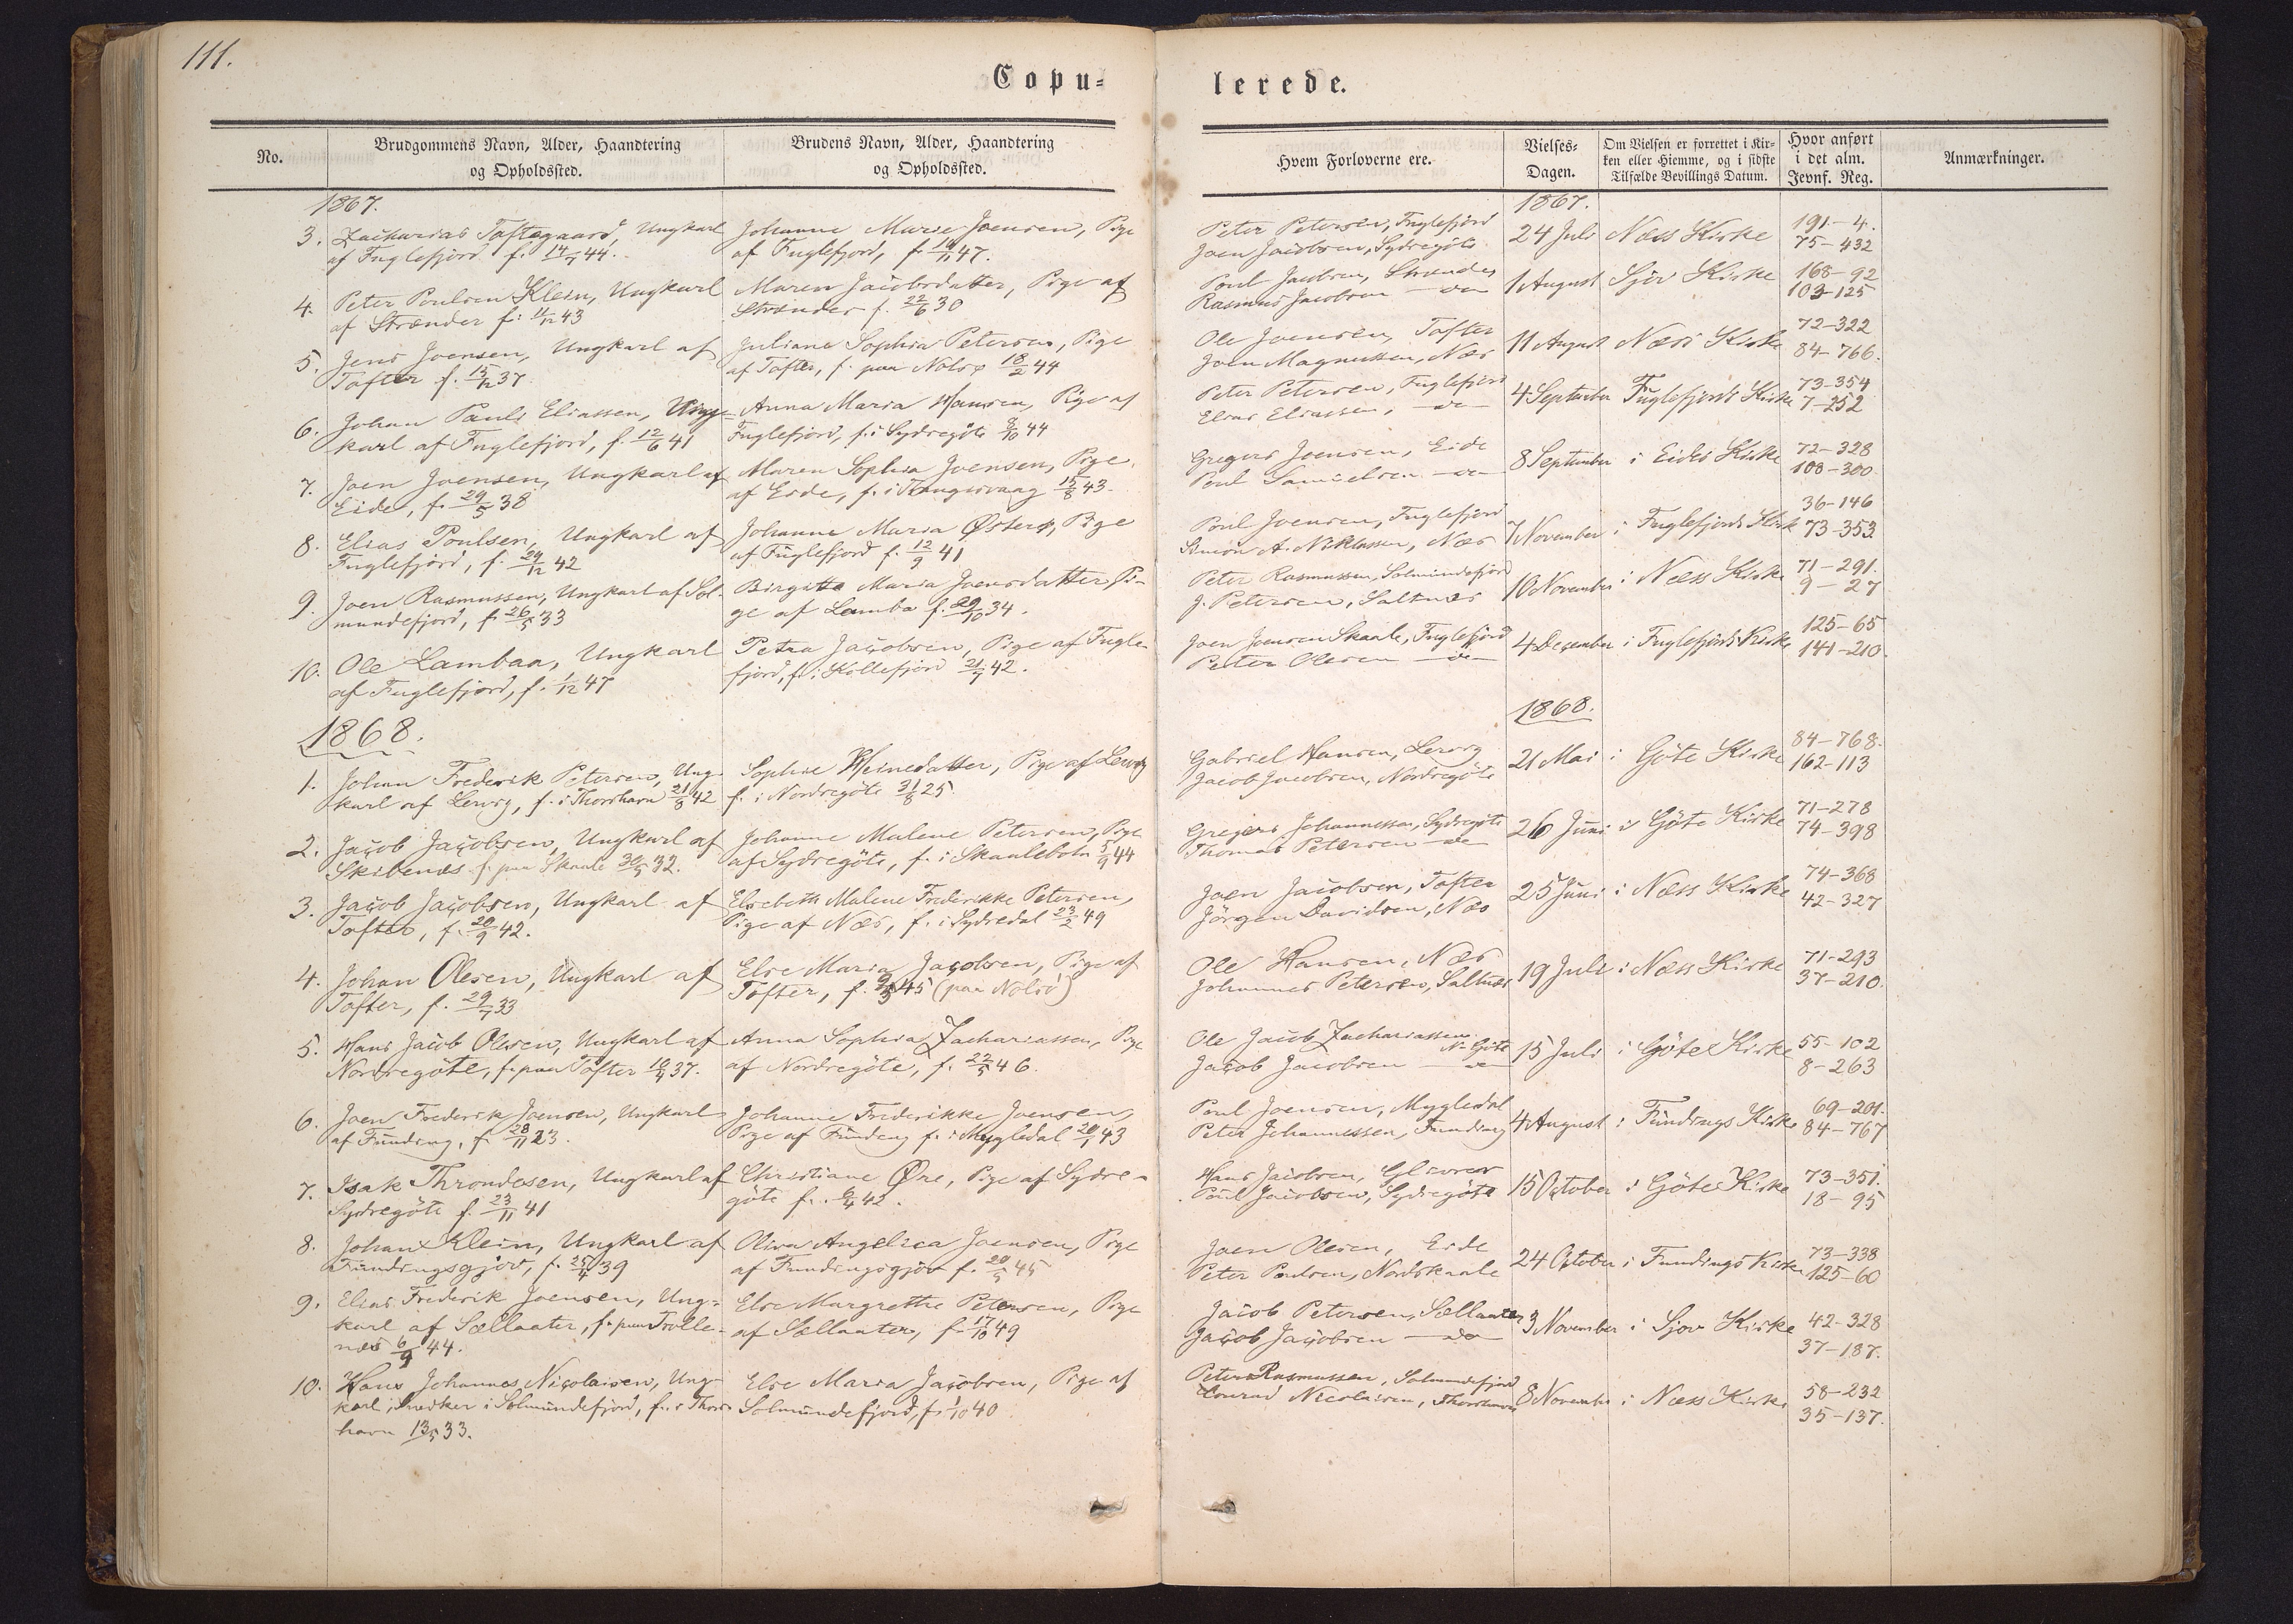 111.
Copu-
lerede.
No.
Brudgommens Navn, Alder, Haandtering
og Opholdssted.
Brudens Navn, Alder, Haandtering
og Opholdssted.
Hvem Forloverne ere.
Vielses-
Dagen.
Om Vielsen er forrettet i Kir-
ken eller Hiemme, og i sidste
Tilfælde Bevillings Datum.
Hvor anført
i det alm.
Jevnf. Reg.
Anmærkninger.
1867.
1867.
3. Zacharias Toftegaard, Ungkarl
af Fuglefjord f. 14/7 44.
Johanne Marie Joensen, Pige
af Fuglefjord, f. 47.
Peter Petersen, Fuglefjord
Joen Jacobsen, Sydregöte
24 Juli
Næss Kirke
191-4.
75-432
4. Peter Poulsen Klein, Ungkarl
af Strænder f. 11/12 43
Maren Jacobsdatter, Pige af
Strænder f. 22/6 30
Poul Jacobsen, Strænder
Rasmus Jacobsen — do
1 August
Sjov Kirke
168-92
103-125
5. Jens Joensen, Ungkarl af
Tofter f. 15/12 37.
Juliane Sophia Petersen, Pige
af Tofter, f. paa Nolsø 18/2 44
Ole Joensen, Tofter
Joen Magnussen, Næs
11 August
Næss Kirke
72-322
84-766.
6. Johan Pauli Eliassen, Ung-
karl af Fuglefjord, f. 12/6 41
Anna Maria Hansen, Pige af
Fuglefjord, f. i Sydregöte 8/10 44
Peter Petersen, Fuglefjord
Elias Eliassen, — do —
4 September
Fuglefjords Kirke
73-354
7-252
7. Joen Joensen, Ungkarl af
Eide, f. 29/5 38
Maren Sophia Joensen, Pige
af Eide, f. i Kongesvaag 15/8 43.
Gregers Joensen, Eide
Poul Samuelsen — do —
8 September
i Eides Kirke
72-328
108-300
8. Elias Poulsen, Ungkarl af
Fuglefjord, f. 24/12 42
Johanne Maria Østerø, Pige
af Fuglefjord f. 12/9 41
Poul Joensen, Fuglefjord
Simon A. Niklassen, Næs
7 November
i Fuglefjords Kirk
36-146
73-353
9. Joen Rasmussen, Ungkarl af Sol-
mundefjord, f. 26/5 33
Birgitte Maria Joensdatter, Pi-
ge af Lamba f. 29/10 34.
Peter Rasmussen, Solmundefjord
J. Petersen, Saltnæs
10 November
i Næss Kirke
71-291.
9-27
10. Ole Lambaa, Ungkarl
af Fuglefjord, f. 1/12 47
Petra Jacobsen, Pige af Fugle-
fjord, f. i Kollefjord 21/7 42.
Joen Joensen Skaale, Fuglefjord
Peter Olesen — do —
4 December
i Fuglefjords Kirke
125-65
141-210.
1868.
1868.
1. Johan Frederik Petersen, Ung-
karl af Lervig, f. i Thorshavn 21/8 42
Sophie Heinedatter, Pige af Lervig
f. i Nordregöte 31/8 25.
Gabriel Hansen, Lervig
Jacob Jacobsen, Nordregöte
21 Mai
i Göte Kirke
84-768.
162-113
2. Jacob Jacobsen, Ungkarl af
Skibenæs f. paa Skaale 30/5 32.
Johanne Malene Petersen, Pige
af Sydregöte, f. i Skaalebotn 5/9 44
Gregers Johannessen, Sydregöte
Thomas Petersen — do
26 Juni
i Göte Kirke
71-278
74-398
3. Jacob Jacobsen, Ungkarl af
Tofter, f. 20/9 42.
Elsebeth Malene Frederikke Petersen,
Pige af Næs, f. i Sydredal 23/2 49
Joen Jacobsen, Tofter
Jörgen Davidsen, Næs
25 Juni
i Næss Kirke
74-368
42-327
4. Johan Olesen, Ungkarl af
Tofter, f. 29/7 33
Else Maria Jacobsen, Pige af
Tofter, f. 45 (paa Nolsö)
Ole Hansen, Næs
Johannes Petersen, Saltnæs
19 Juli
i Næss Kirke
71-293
37-210.
5. Hans Jacob Olesen, Ungkarl af
Nordregöte, f. paa Tofter 18/4 37.
Anna Sophia Zachariassen, Pige
af Nordregöte, f. 22/5 46.
Ole Jacob Zachariassen N. Göte
Jacob Jacobsen — do —
15 Juli
i Göte Kirke
55-102
8-263
6. Joen Frederik Joensen, Ungkarl
af Funding, f. 28/11 23.
Johanne Frederikke Joensen,
Pige af Funding f. i Mygledal 20/1 43
Poul Joensen, Mygledal
Peter Johannessen, Funding
4 August
i Fundings Kirke
69-201.
84-767
7. Isak Throndesen, Ungkarl af
Sydregöte f. 23/11 41
Christiane Øre, Pige af Sydre-
göte f. 42.
Hans Jacobsen, Glivrer
Poul Jacobsen, Sydregöte
15 October
i Göte Kirke
73-351.
18-95
8. Johan Klein, Ungkarl af
Fundingsgjov, f. 25/4 39
Oliva Angelica Joensen, Pige
af Fundingsgjov f. 20/5 45
Joen Olesen, Eide
Peter Poulsen, Nordskaale
24 October
i Fundings Kirke
73-338
125-60
9. Elias Frederik Joensen, Ung-
karl af Sællaater, f. paa Trolle-
næs 6/9 44.
Else Margrethe Petersen, Pige
af Sællaater, f. 17/10 49
Jacob Petersen, Sællaater
Jacob Jacobsen — do —
3 November
i Sjov Kirke
42-328
37-187.
10. Hans Johannes Nicolaisen, Ung-
karl, Snedker i Solmundefjord, f. i Thors-
havn 13/5 33.
Else Maria Jacobsen, Pige af
Solmundefjord, f. 1/10 40
Peter Rasmussen, Solmundefjord
Conrad Nicolaisen, Thorshavn
8 November
i Næss Kirke
58-232
35-137.